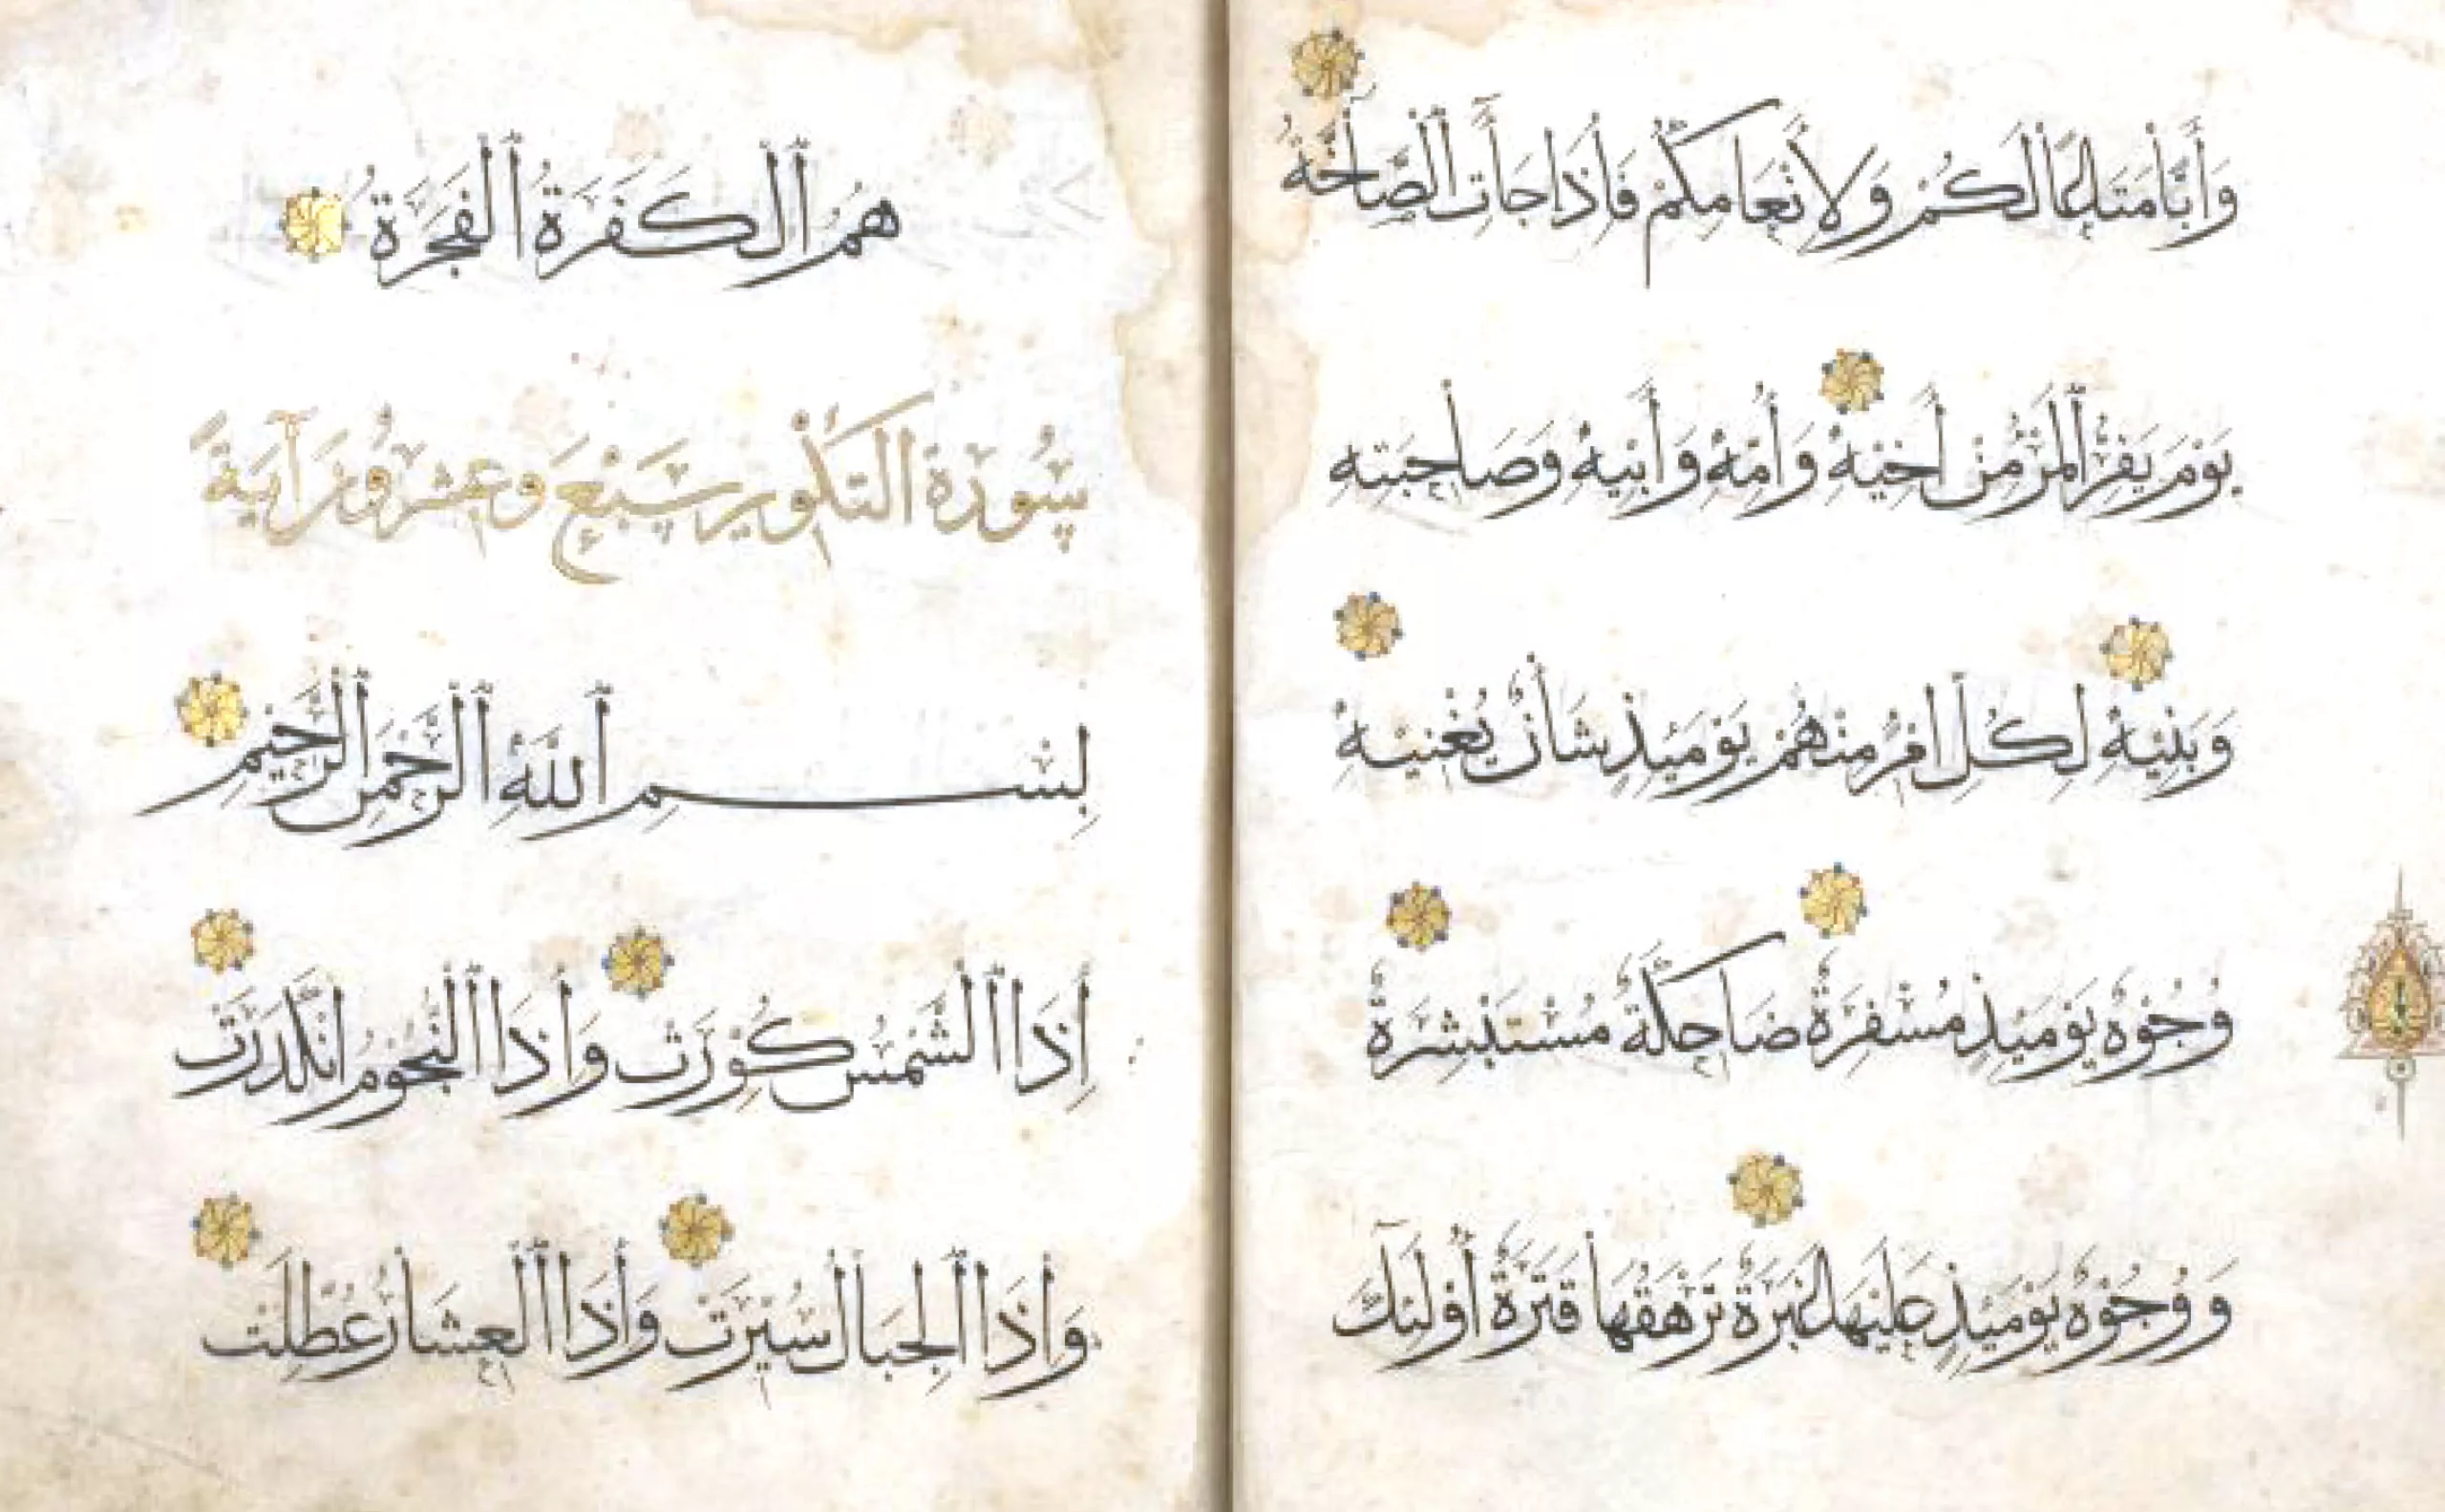 وَأَبًّا مَتَاعًا لَكُمْ وَلِأَنْعَامِكُمْ فَإِذَا جَاءَتِ ٱلصَّاخَّةُ
يَوْمَ يَفِرُّ ٱلْمَرْءُ مِنْ أَخِيهِ وَأُمِّهِ وَأَبِيهِ وَصَاحِبَتِهِ
وَبَنِيهِ لِكُلِّ امْرِئٍ مِنْهُمْ يَوْمَئِذٍ شَأْنٌ يُغْنِيهِ
وُجُوهٌ يَوْمَئِذٍ مُسْفِرَةٌ ضَاحِكَةٌ مُسْتَبْشِرَةٌ
وَوُجُوهٌ يَوْمَئِذٍ عَلَيْهَا غَبَرَةٌ تَرْهَقُهَا قَتَرَةٌ أُولَٰئِكَ
هُمُ ٱلْكَفَرَةُ ٱلْفَجَرَةُ
سُورَةُ التَّكْوِيرِ سَبْعَ وَعِشْرُونَ آيَةً
بِسْمِ ٱللَّهِ ٱلرَّحْمَنِ ٱلرَّحِيمِ
إِذَا ٱلشَّمْسُ كُوِّرَتْ وَإِذَا ٱلنُّجُومُ انْكَدَرَتْ
وَإِذَا ٱلْجِبَالُ سُيِّرَتْ وَإِذَا ٱلْعِشَارُ عُطِّلَتْ